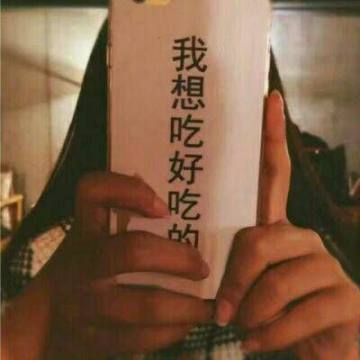 我想吃好吃的